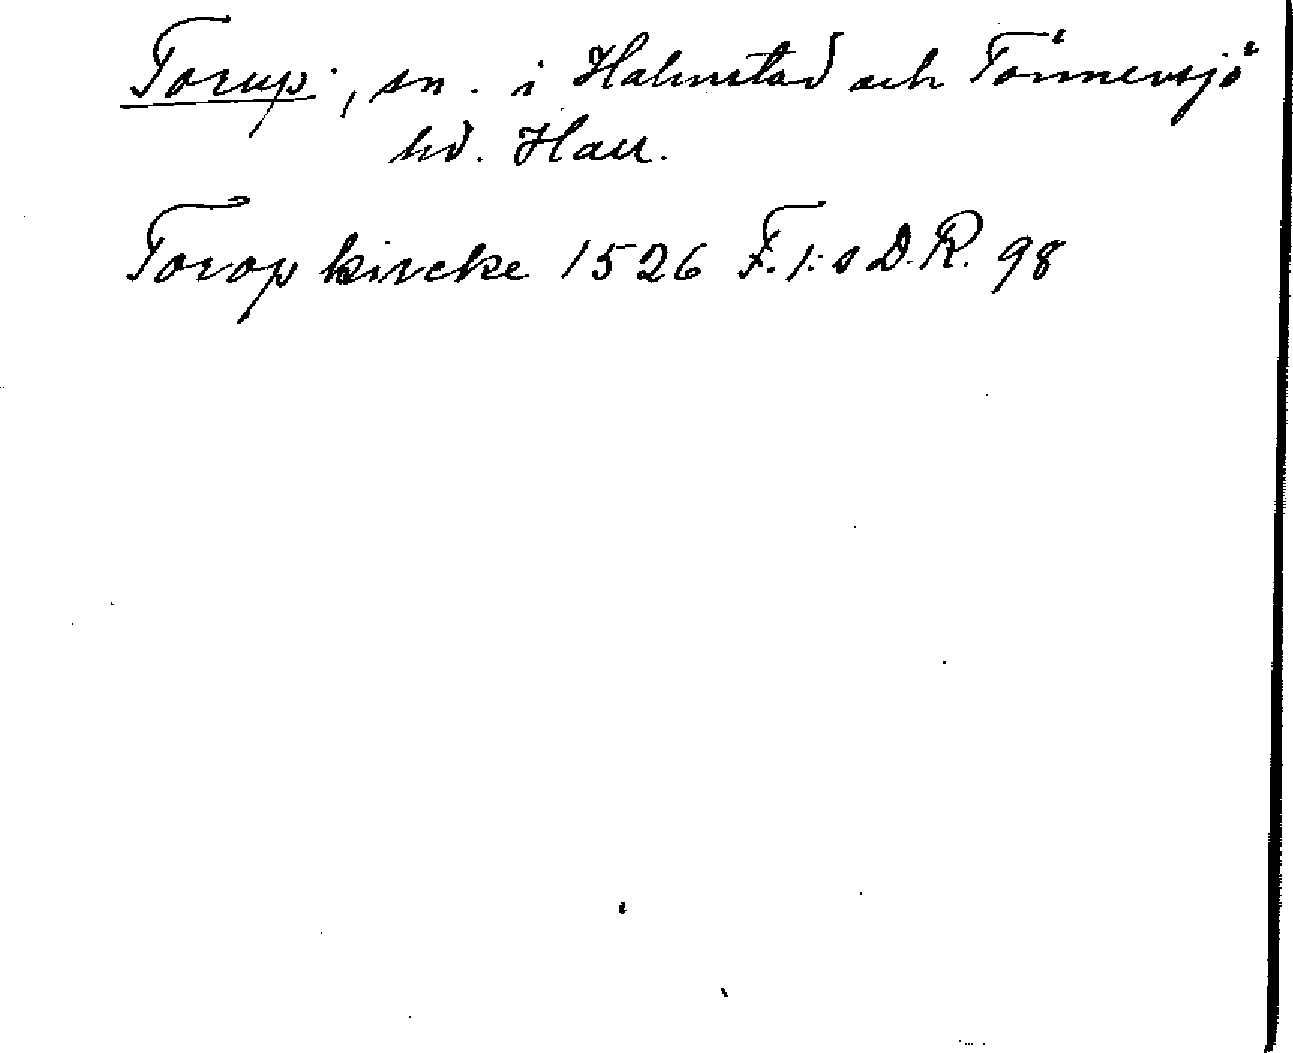 Torup, sn. i Halmstad och Tönnersjö
hd. Hall.
Torop kircke 1526 F.1:s D.R. 98